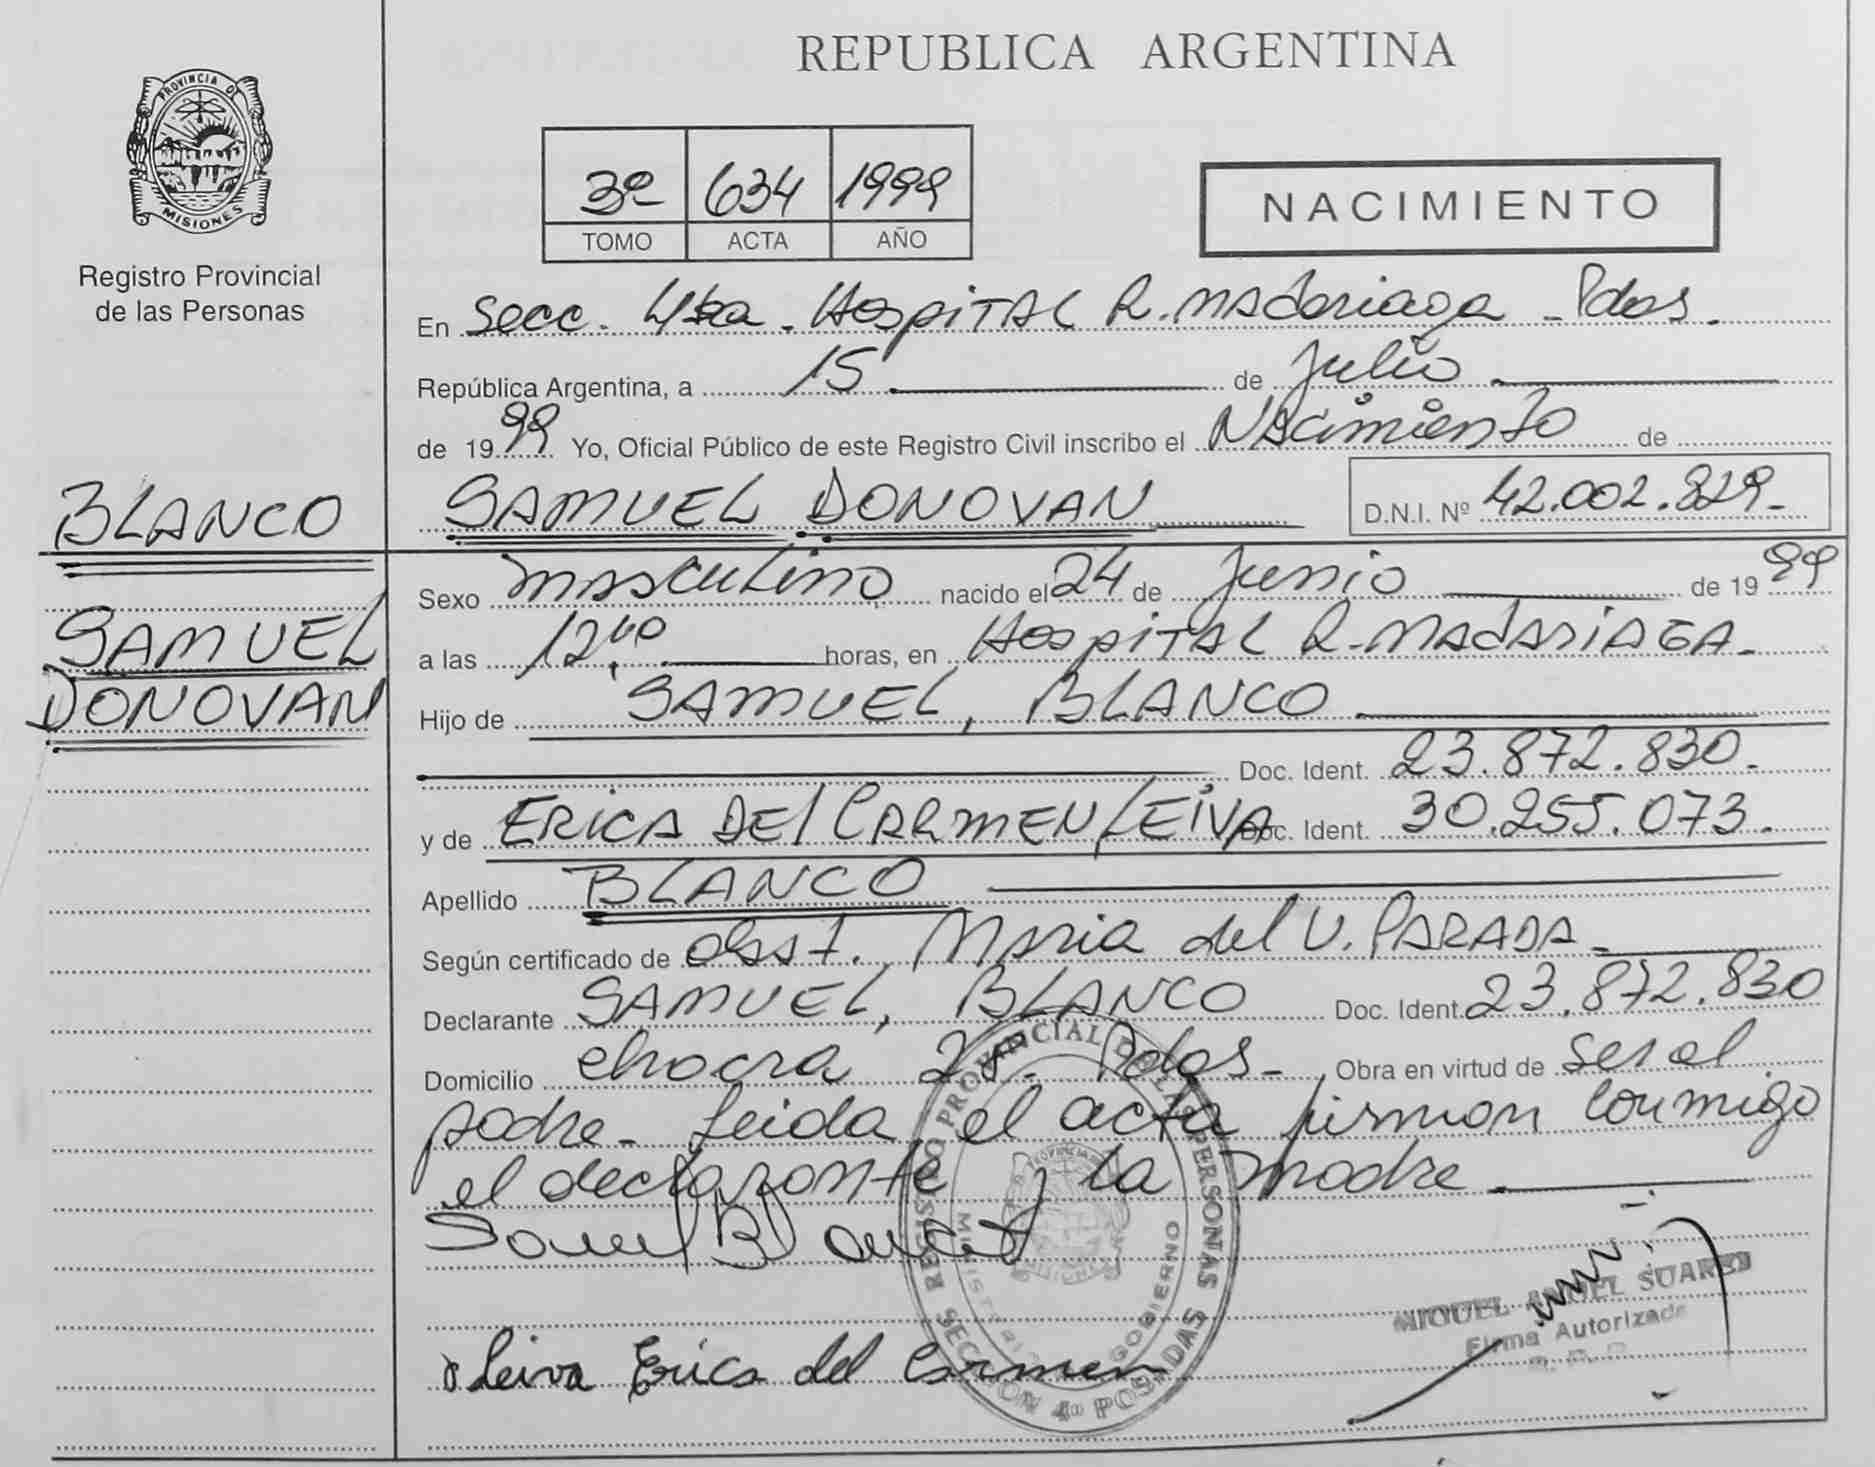 REPUBLICA ARGENTINA
PROVINCIA DE
MISIONES
Registro Provincial
de las Personas
3º 634 1999
TOMO ACTA AÑO
NACIMIENTO
En Secc. 4ta. Hospital R. Madariaga - Pdas.
República Argentina, a 15 de Julio
de 1999 Yo, Oficial Público de este Registro Civil inscribo el Nacimiento de
SAMUEL DONOVAN D.N.I. Nº 42.002.829.-
BLANCO
SAMUEL
DONOVAN
Sexo masculino nacido el 24 de Junio de 1999
a las 12,40 horas, en Hospital R. Madariaga.
Hijo de SAMUEL, BLANCO
Doc. Ident. 23.872.830.-
y de ERICA DEL CARMEN LEIVA Doc. Ident. 30.255.073.
Apellido BLANCO
Según certificado de Obst. Maria del V. PARADA
Declarante SAMUEL, BLANCO Doc. Ident. 23.872.830
Domicilio chacra Pdas- Obra en virtud de ser el
padre- Leida el acta firman conmigo
el declarante y la madre
Samuel Blanco
Leiva Erica del Carmen
REGISTRO PROVINCIAL DE LAS PERSONAS
MINISTERIO GOBIERNO
SECCION 4ª POSADAS
MIGUEL ANGEL SUAREZ
Firma Autorizada